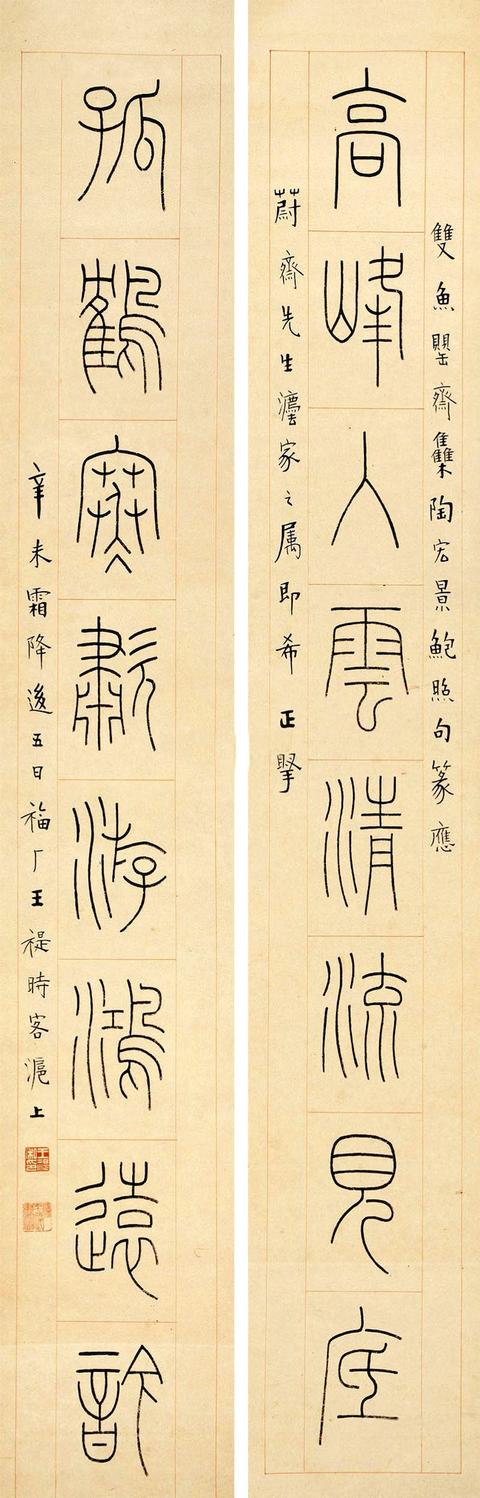 雙魚罌齋雧陶宏景鮑照句篆應
高峰入雲清流見底
蔚齋先生灋家之属即希正掔
孤鶴寒歗游鴻遠訡
辛未霜降後五日福厂王禔時客滬上